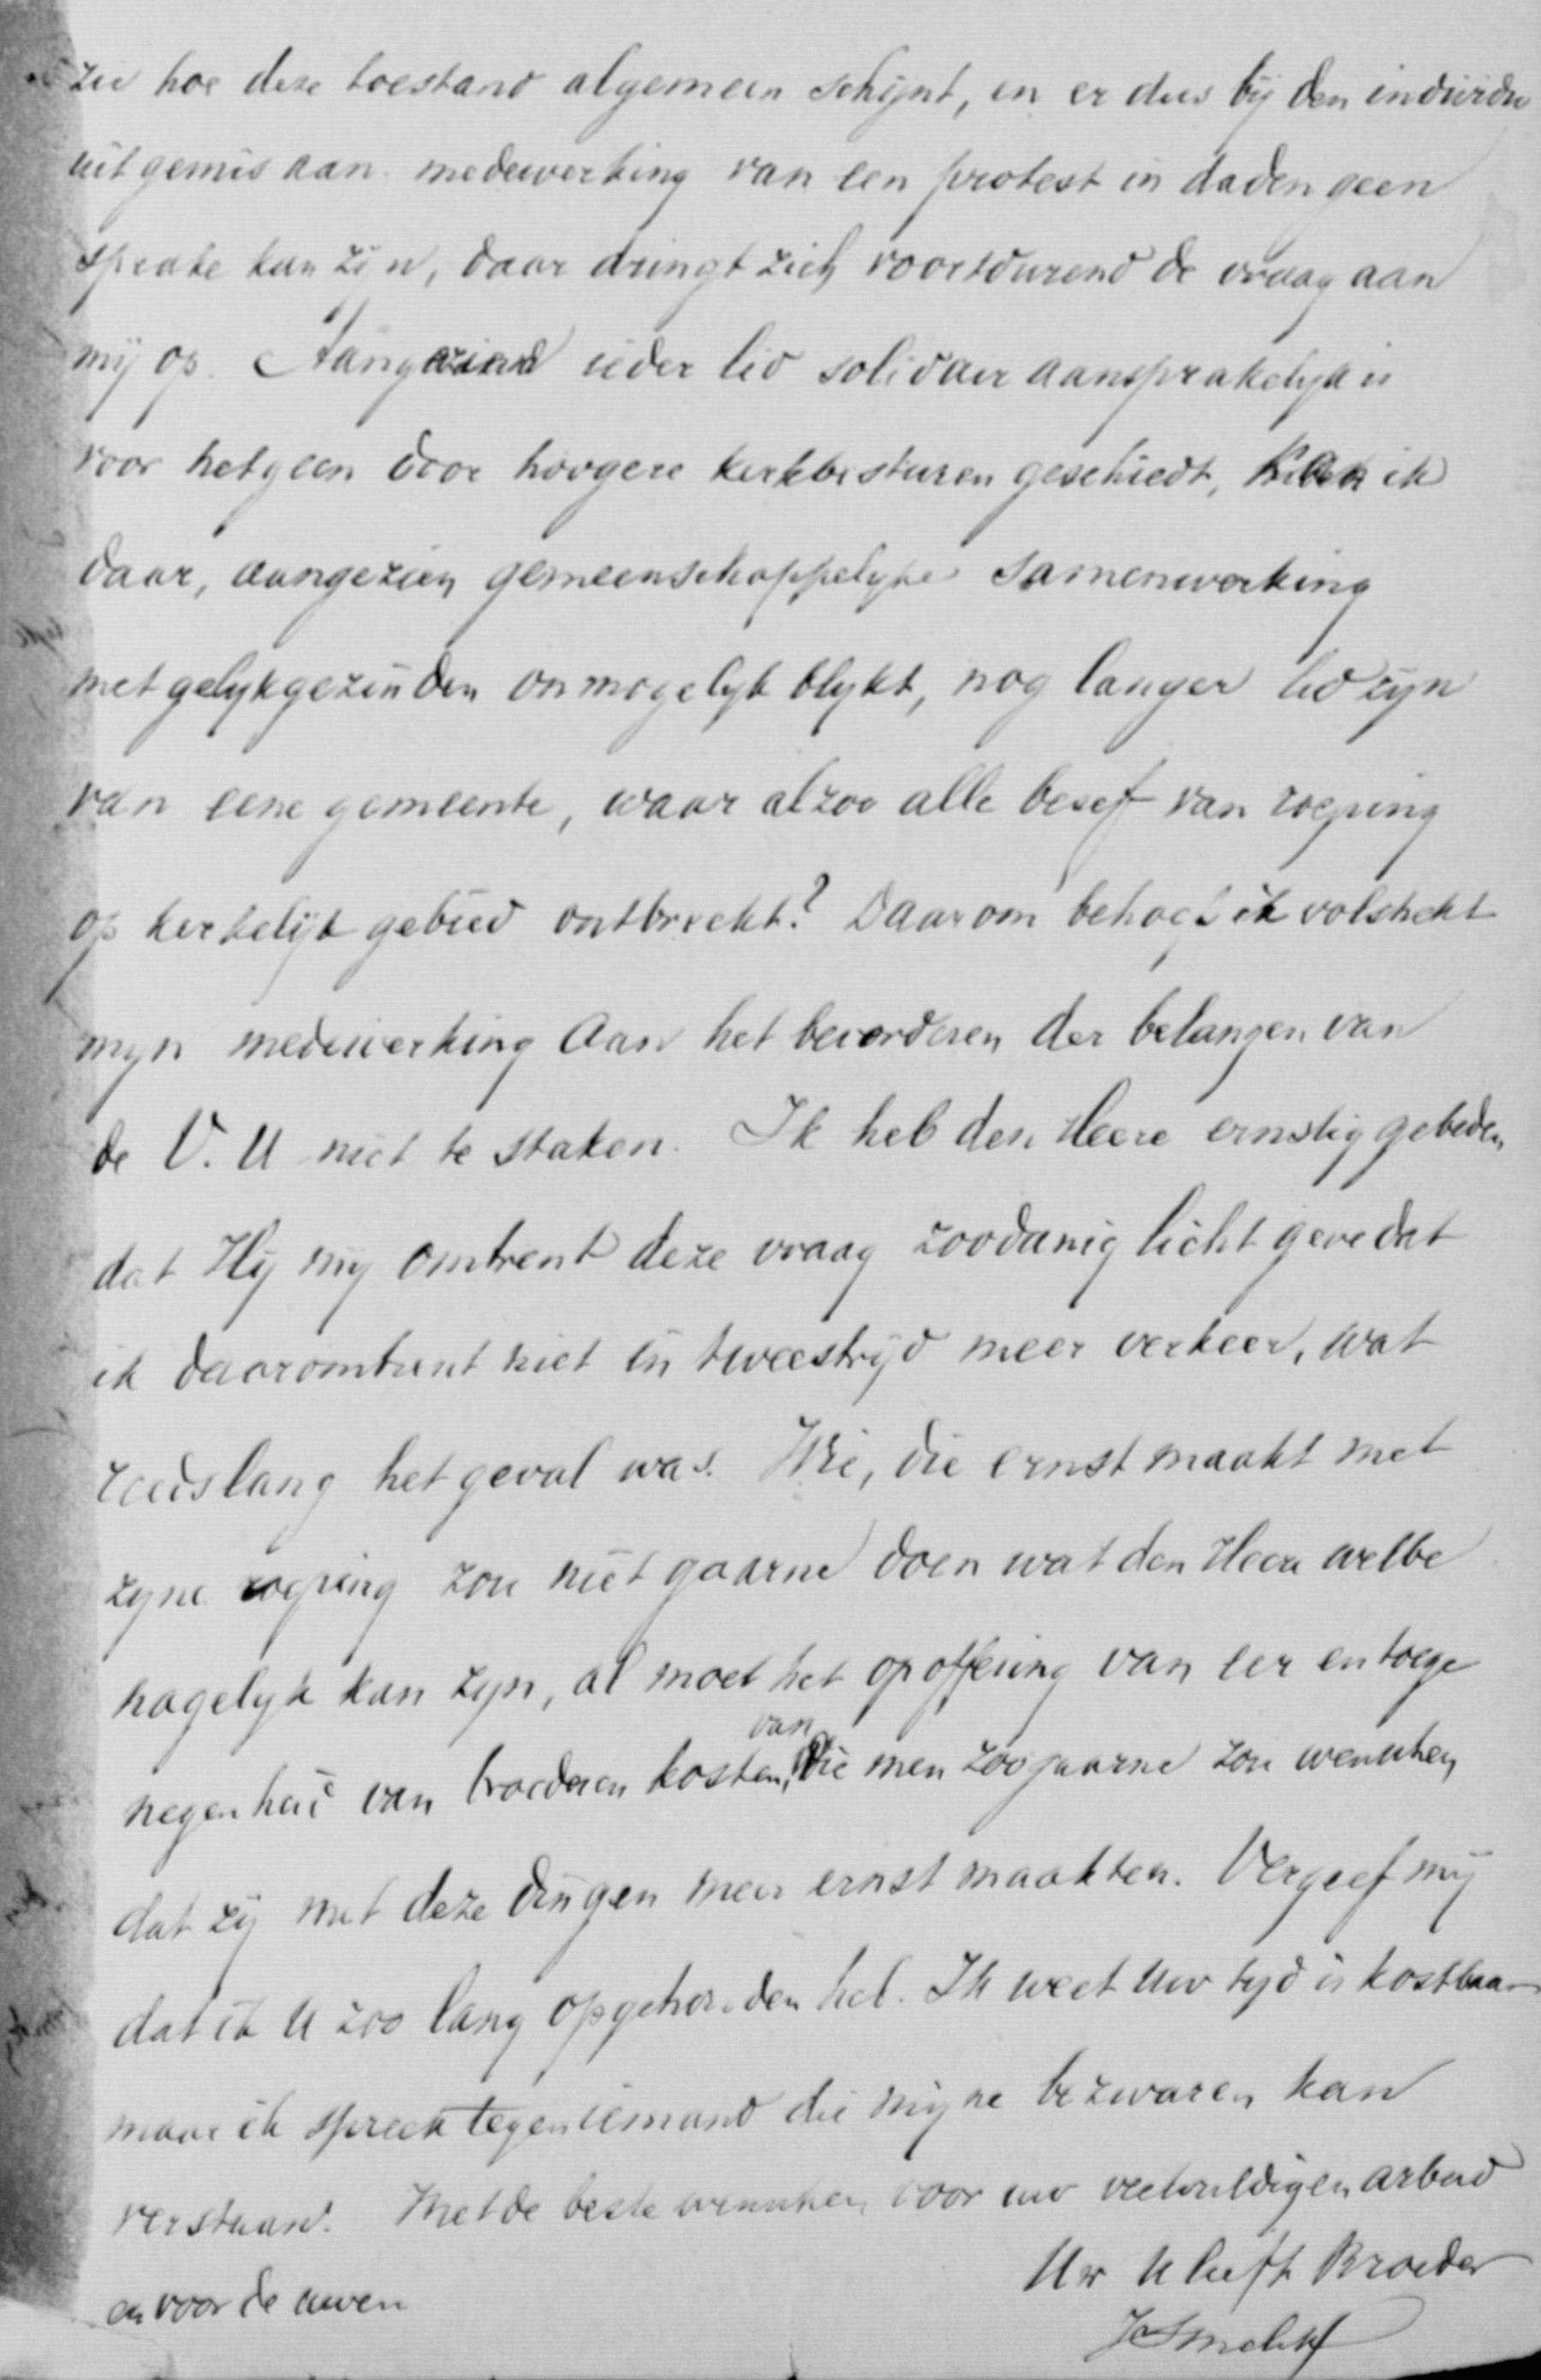 zie hoe deze toestand algemeen schijnt, en er dus bij den individu
uit gemis aan medewerking van een protest in daden geen
sprake kan zijn, daar dringt zich voortdurend de vraag aan
mij op. Aangezien ieder lid solidair aansprakelijk is
voor hetgeen door hoogere kerkbesturen geschiedt, kan ik
daar, aangezien gemeenschappelijke samenwerking
met gelijkgezinden onmogelijk blijkt, nog langer lid zijn
van eene gemeente, waar alzoo alle besef van roeping
op kerkelijk gebied ontbreekt? Daarom behoef ik volstrekt
mijn medewerking aan het bevorderen der belangen van
de V. U niet te staken. Ik heb den Heere ernstig gebeden
dat Hij mij omtrent deze vraag zoodanig licht geve dat
ik daaromtrent niet in tweestrijd meer verkeer, wat
reeds lang het geval was. Wie, die ernst maakt met
zijne roeping zou niet gaarne doen wat den Heere welbe
hagelijk kan zijn, al moet het opoffering van eer en toege
negenheid van broederen kosten, van die men zoo gaarne zou wenschen
dat zij met deze dingen meer ernst maakten. Vergeef mij
dat ik U zoo lang opgehouden heb. Ik weet Uw tijd is kostbaar
maar ik spreek tegen iemand die mijne bezwaren kan
verstaan. Met de beste wenschen voor uw veelvuldigen arbeid
en voor de uwen
Uw U lieft Broeder